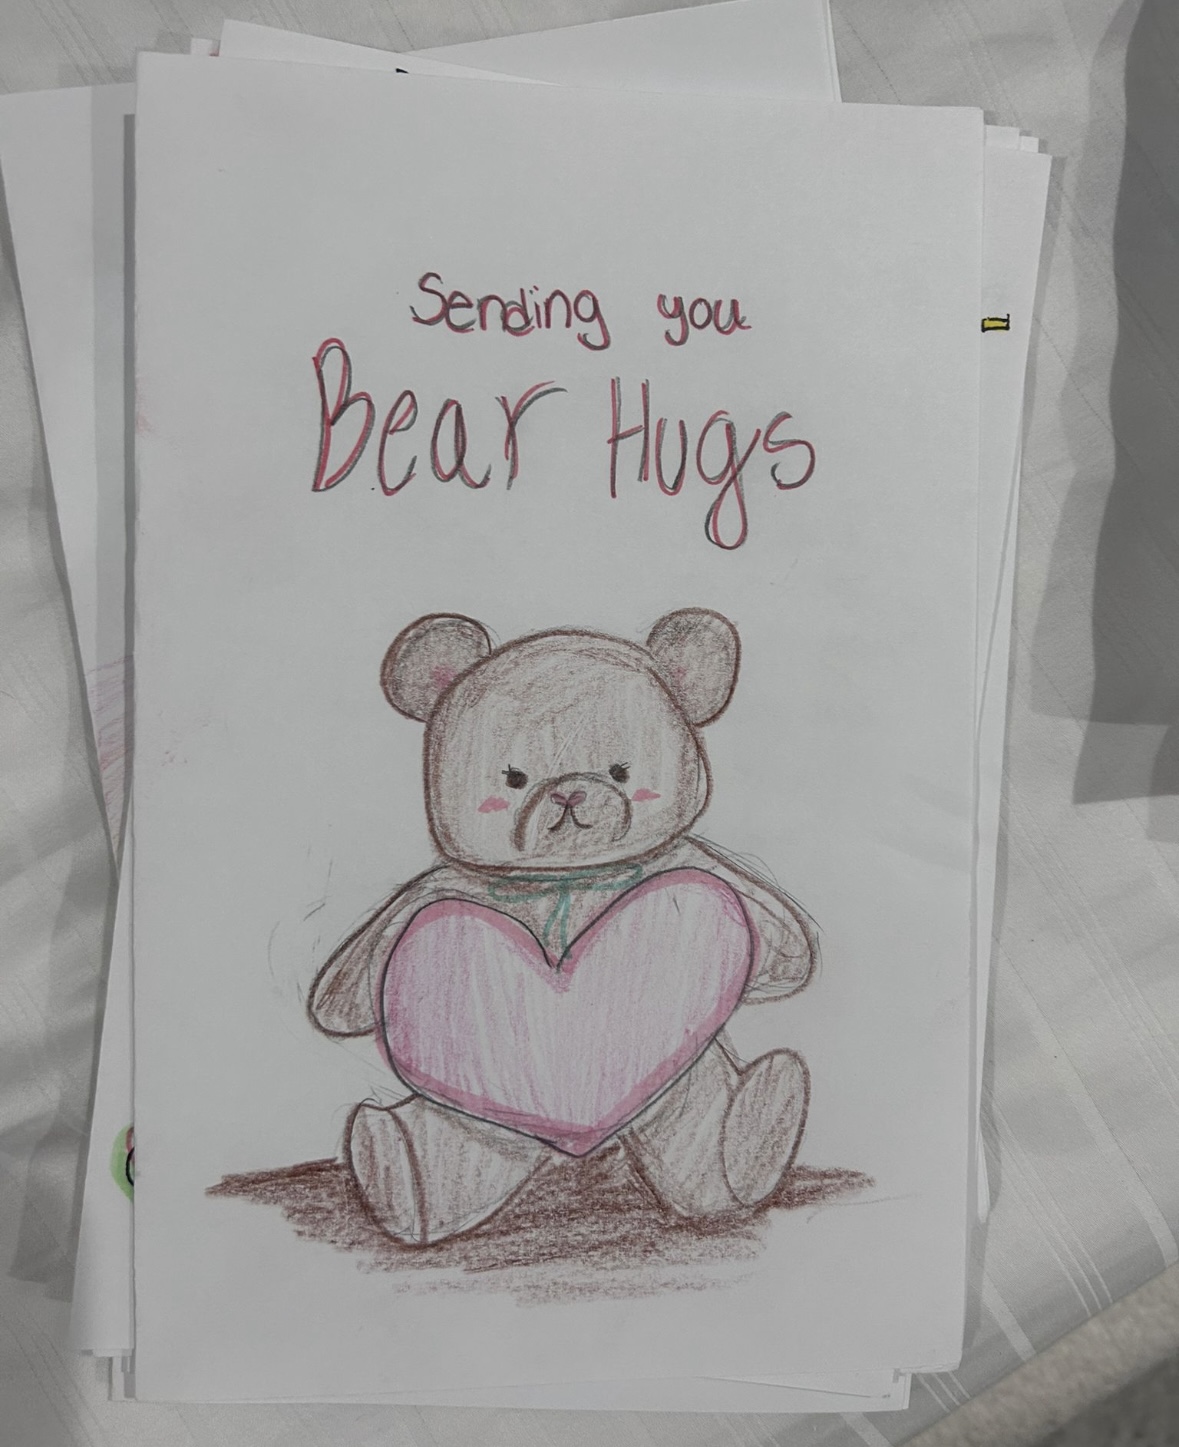 Sending you
Bear Hugs